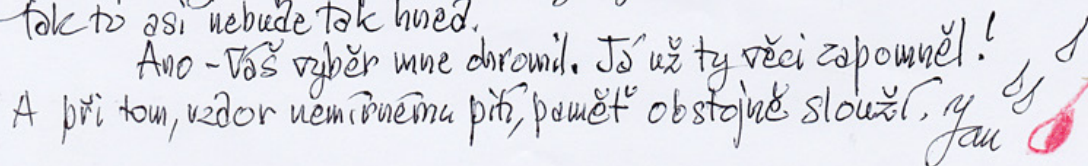 tak to asi nebude tak hned.
Ano - Váš výběr mne ohromil. Já už ty věci zapomněl!
A při tom, vzdor nemírnému pití, paměť obstojně slouží.
Jan